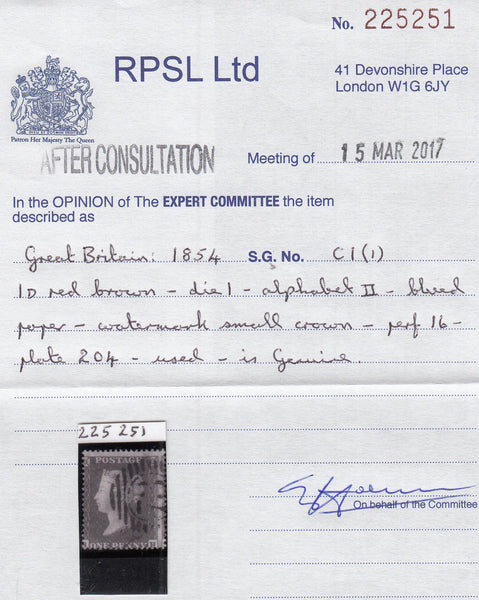 No. 225251
RPSL Ltd
41 Devonshire Place
London W1G 6JY
Patron Her Majesty The Queen
AFTER CONSULTATION
Meeting of 15 MAR 2017
In the OPINION of The EXPERT COMMITTEE the item
described as
Great Britain: 1854 S.G. No. C1(1)
1D red brown - die 1 - alphabet II - blued
paper - watermark small crown - perf 16 -
plate 204 - used - is Genuine.
225 251
POSTAGE
On behalf of the Committee
ONE PENNY